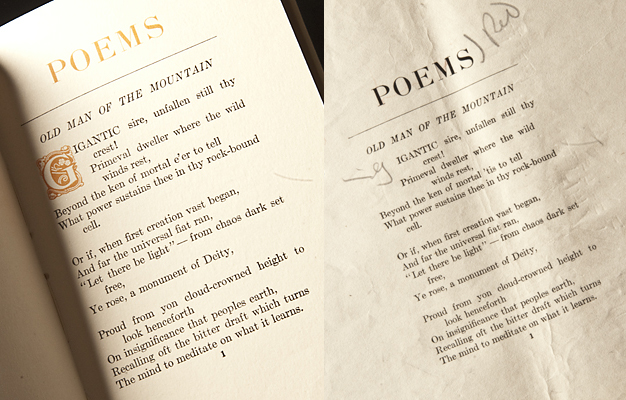 POEMS
OLD MAN OF THE MOUNTAIN
GIGANTIC sire, unfallen still thy
crest!
Primeval dweller where the wild
winds rest,
Beyond the ken of mortal e'er to tell
What power sustains thee in thy rock-bound
cell.
Or if, when first creation vast began,
And far the universal fiat ran,
"Let there be light"—from chaos dark set
free,
Ye rose, a monument of Deity,
Proud from yon cloud-crowned height to
look henceforth
On insignificance that peoples earth,
Recalling oft the bitter draft which turns
The mind to meditate on what it learns.
1
POEMS) Red
OLD MAN OF THE MOUNTAIN
IGANTIC sire, unfallen still thy
crest!
Primeval dweller where the wild
winds rest,
Beyond the ken of mortal 'tis to tell
What power sustains thee in thy rock-bound
cell.
Or if, when first creation vast began,
And far the universal fiat ran,
"Let there be light"—from chaos dark set
free,
Ye rose, a monument of Deity,
Proud from yon cloud-crowned height to
look henceforth
On insignificance that peoples earth,
Recalling oft the bitter draft which turns
The mind to meditate on what it learns.
1